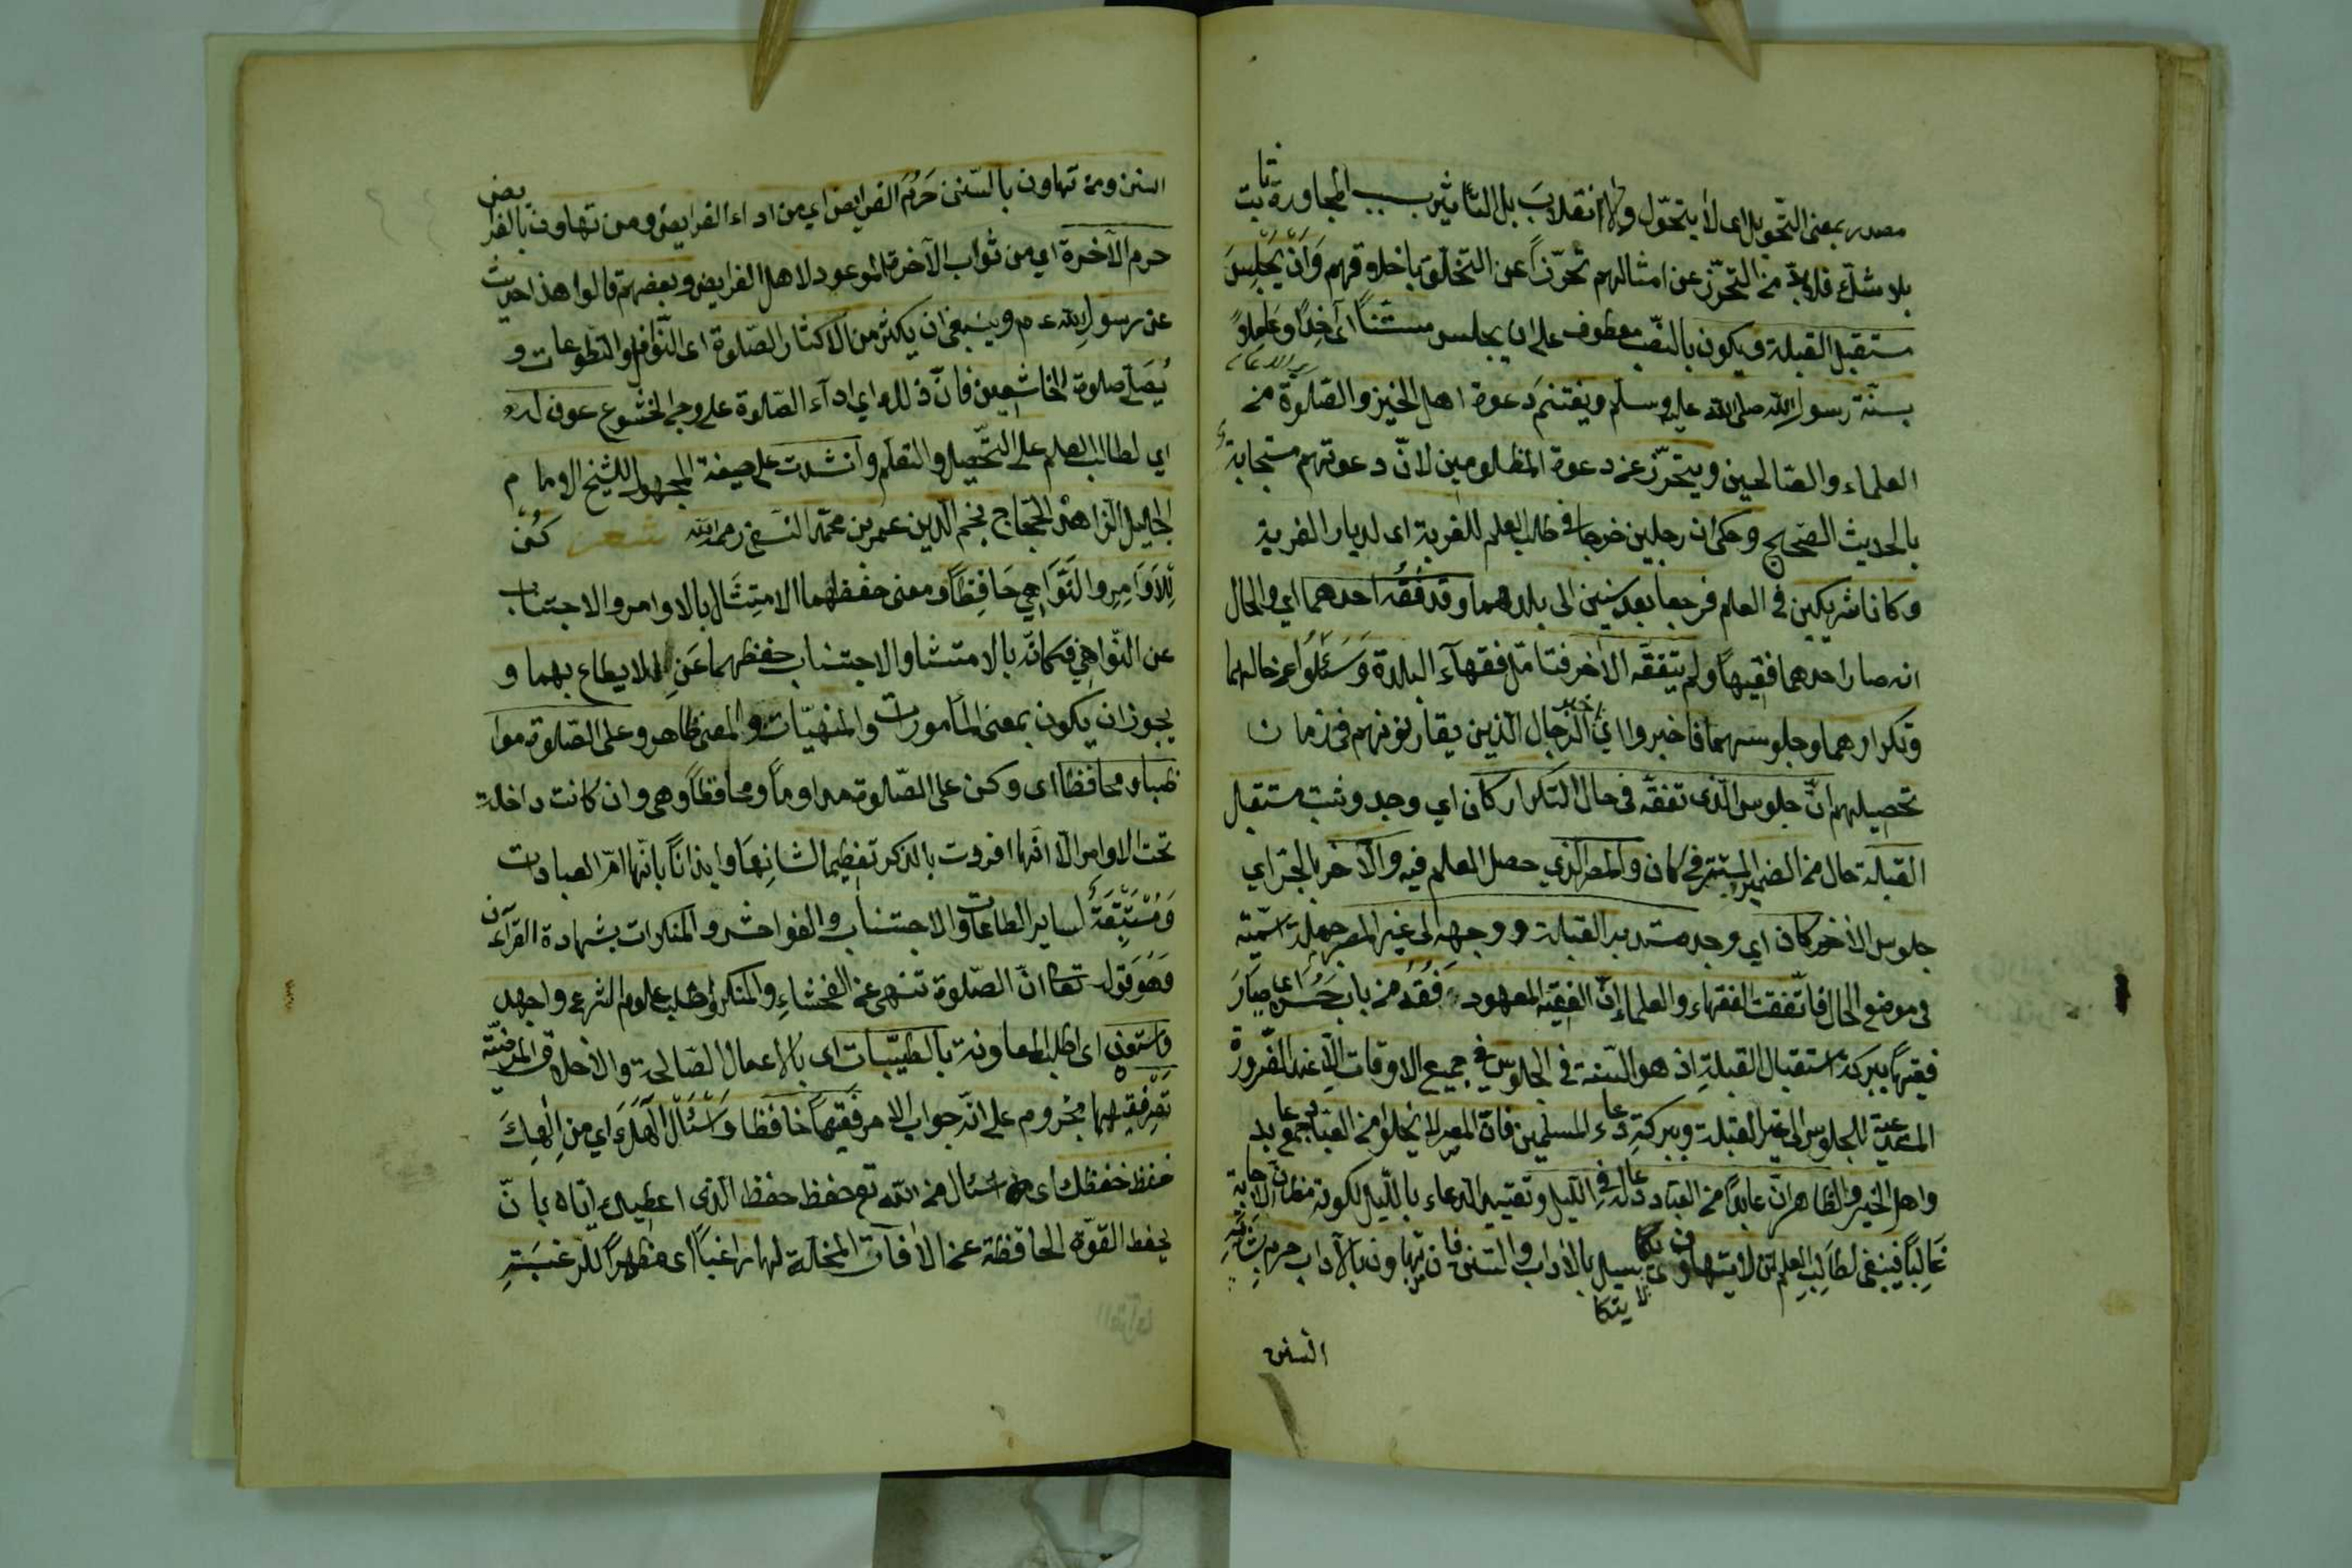 مصدر بمعنى التّحويل اى لا يتحوّل ولا انقلاب بل التأثير بسبب المجاورة ثابت
بلا شكّ فلا بدّ من التحرّز عن امثالهم تحرّزاً عن التخلّق باخلاقهم وَاَنْ يَجْلِسَ
مستقبل القبلة ويكون بالنّصب معطوف على ان يجلس مستنّاً اى آخذاً وعاملاً
بسنّة رسول الله صلى الله عليه وسلم ويغتنم دعوة اهل الخير والصّلوة من
العلماء والصّالحين ويتحرّز عن دعوة المظلومين لانّ دعوتهم مستجابة
بالحديث الصّحيح وحكى ان رجلين خرجا فى طلب العلم للغربة اى لديار الغربة
وكانا شريكين فى العلم فرجعا بعد سنين الى بلدهما وقد فَقُهَ احدهما اي والحال
انه صار احدهما فقيهاً ولم يتفقّه الاخر فتامّل فقهآء البلدة وَسَئَلُوا عن حالهما
وتكرارهما وجلوسهما فاخبروا اي الرّجال الذين يعارفونهم فى زمان
تحصيلهم انّ جلوس الّذى تفقّه فى حال التكرار كان اي وجد وثبت مستقبل
القبلة حال من الضمير المستتر فى كان والمصر الذي حصل العلم فيه والآخر بالجرّ اي
جلوس الاخر كان اي وجد مستدبر القبلة ووجهه الى غير المصر جملة اسميّة
فى موضع الحال فاتّفقت الفقهاء والعلماء انّ الفقيه المعهود فَقُهَ من باب حَسُنَ اى صَارَ
فقيهاً ببركة استقبال القبلة اذ هو السّنة فى الجلوس فى جميع الاوقات الّا عند الضّرورة
المتعدّية للجلوس الى غير القبلة وببركة دعاء المسلمين فانّ المصر لا يخلو من العبّاد جمع عابد
واهل الخير والظاهر انّ عابداً من العبّاد دعا له فى اللّيل وتقييد الدعاء بالليل لكونه مظانّ الاجابة
غَالِباً فينبغى لطالب العلم ان لا يتهاون اى يتكاسل بالآداب والسّنن فان من تهاون بالآداب حرم
لا يتكا
السّنن
السنن ومن تهاون بالسّنن حَرُمَ الفرايض اي من اداء الفرايض ومن تهاون بالفرايض
حرم الآخرة اي من ثواب الآخرة الموعود لاهل الفرايض وبعضهم قالوا هذا حديث
عن رسول الله عـ م وينبغى ان يكثر من الاكثار الصّلوة اى النّوافل والتّطوعات و
يُصَلّى صلوة الخاشعين فانّ ذلك اي ادآء الصّلوة على وجه الخشوع عون له
اي لطالب العلم على التّحصيل والتعلّم وانشدت على صيغة المجهول للشيخ الامام
الجليل الزاهد الحجّاج نجم الدين عمر بن محمّد النّسفى رحمه الله شعر كُنْ
لِلاَوَامِرِ وَالنَّوَاهِي حَافِظاً ومعنى حفظهما الامتِثَال بالاوامر والاجتناب
عن النّواهي فكانّه بالامتثال والاجتناب حفظهما عَن ان لا يطاع بهما و
يجوز ان يكون بمعنى المأمورات والمنهيّات والمعنى ظاهر وعلى الصّلوة موا
ظبا ومحافظا اى وكن على الصّلوة مداوماً ومحافظاً وهى وان كانت داخلة
تحت الاوامر الّا انّها افردت بالذكر تعظيما لشانها وايذاناً بانّها امّ العبادات
وَمُسْتَتْبِعَةٌ لساير الطاعات والاجتناب والفواحش والمنكرات بشهادة القرآن
وَهُوَ قوله تعا انّ الصّلوة تنهى عن الفحشاءِ والمنكر واطلب علوم الشرع واجهد
واستعن اى اطلب المعاونة بالطيّبات اى بالاعمال الصّالحة والاخلاق المرضيّة
تَصِرْ فقيها مجزوم على انّه جواب الامر فقيهاً حافظا وَاسْئَالْ اِلٰهَكَ اي من اِلٰهِكَ
حفظ حفظك اى اسئال من الله تع حفظ حفظ الذى اعطيك ايّاه بانّ
يحفظ القوّة الحافظة عن الآفات المخلّة لها راغباً اى مظهراً للرغبَةِ